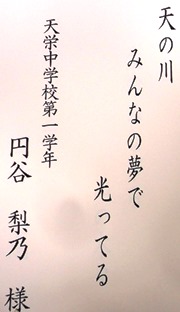 天の川
みんなの夢で
光ってる
天栄中学校第一学年
円谷 梨乃 様